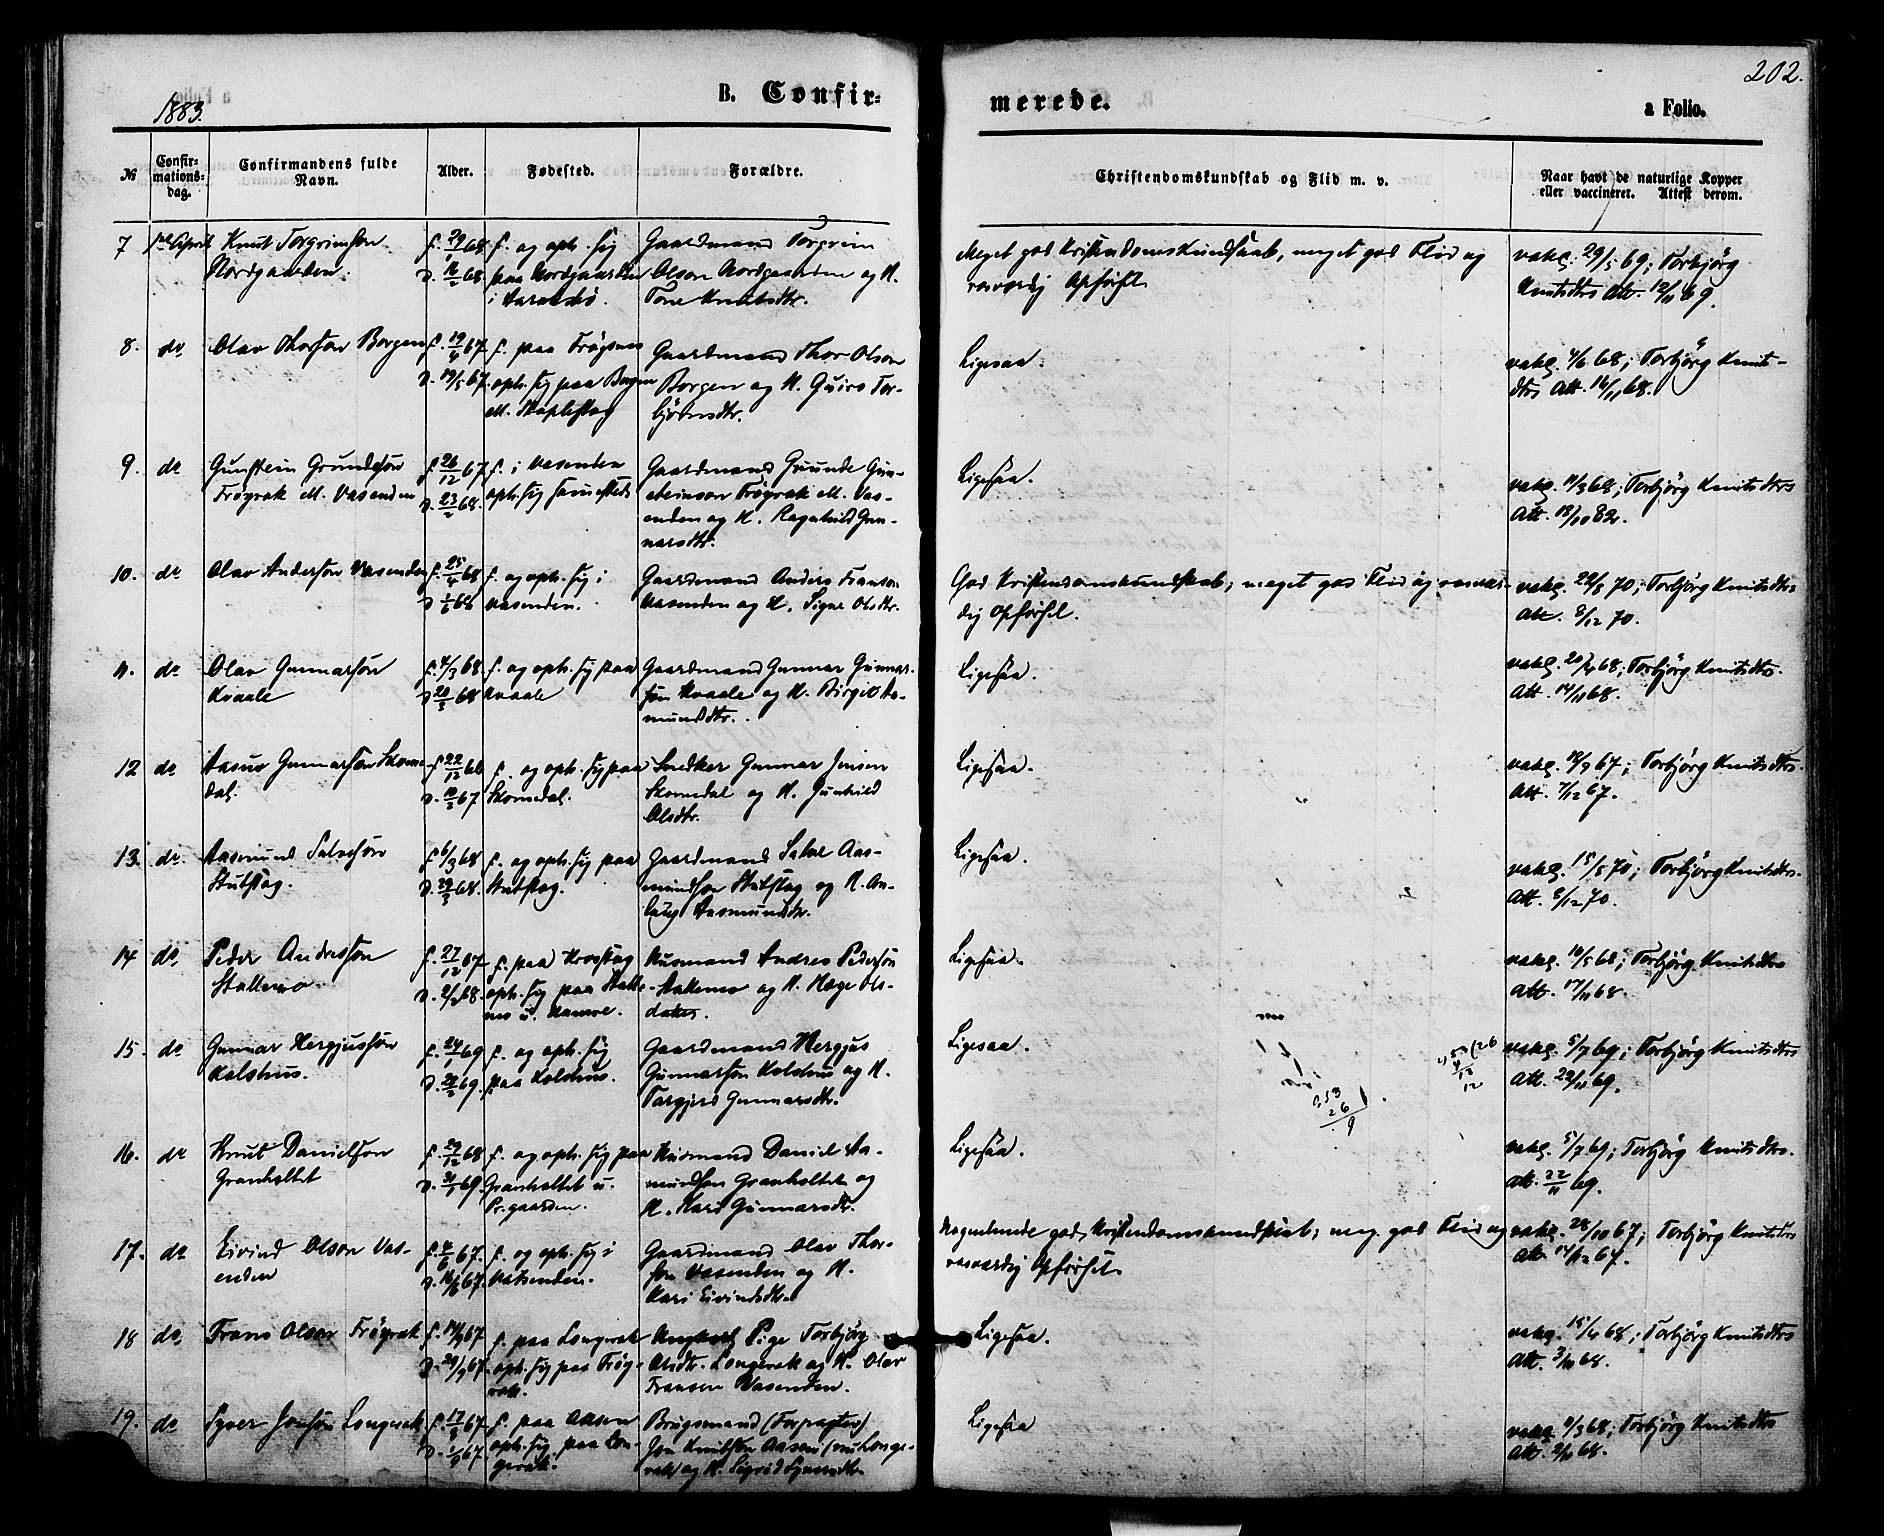 202.
1883.
B. Confir-
merede.
a Folio.
№
Confir-
mations-
dag.
Confirmandens fulde
Navn.
Alder.
Fødested.
Forældre.
Christendomskundskab og Flid m. v.
Naar havt de naturlige Kopper
eller vaccineret. Attest derom.
7 1ste April Knut Torgrimsøn
Nordgaarden.
f. og oph. sig
paa Nordgaarden
Gaardmand Torgrim
Olson Nordgaarden og H.
Tone Knutsdtr.
Meget god Kristendomskundskab, meget god Flid og
rosværdig Opførsel
vakc. 29/5 69; Torbjörg
Knutsdtrs Att. 12/11 69.
8. do Olav Thorson Borgen
f. 19/4 67
D. 19/5 67.
f. paa Frøysnes
oph. sig paa Borgen
M.
Gaardmand Thor Olson
Borgen og H. Guro Tor-
björnsdtr.
Ligesaa.
vakc. 4/6 68; Torbjörg Knuts-
dtrs Att. 16/11 68.
9. do Gunstein Grundesøn
Frøyrak M. Vasenden
f. 26/12 67
D. 23/2 68.
f. i Vasenden
oph. sig samesteds
Gaardmand Grunde Gun-
steinson Frøyrak M. Vas-
enden og H. Ragnhild Gun-
narsdtr.
Ligesaa.
vakc. 11/3 68; Torbjörg Knutsdtrs
Att. 18/10 82.
10. do Olav Anderson Vasenden
f. 25/4 68
f. og oph. sig i
Vasenden.
Gaardmand Anders Franson
Vasenden og H. Signe Olsdtr.
God Kristendomskundskab; meget god Flid og rosvær-
dig Opførsel.
vakc. 22/5 70; Torbjörg Knutsdtrs
Att. 8/12 70.
11. do Olav Gunnarsøn
Kvaale
f. 4/3 68
D. 20/3 68
f. og oph. sig paa
Kvaale
Gaardmand Gunnar Gunnar-
søn Kvaale og H. Birgit Aa-
mundsdtr.
Ligesaa.
vakc. 20/4 68; Torbjörg Knutsdtrs.
Att. 14/11 68.
12 do Aasuv Gunnarsøn Skome-
dal.
f. 22/12 66
D. 10/3 67
f. og oph. sig paa
Skomedal.
Snedker Gunnar Jensen
Skomedal og H. Gunhild
Olsdtr.
Ligesaa.
vakc. 18/9 67; Torbjörg Knutsdtrs.
Att. 7/12 67.
13. do. Aasmund Salvesøn
Stutstog.
f. 6/3 68
D. 29/3 68.
f. og oph. sig paa
Stutstog.
Gaardmand Salve Aas-
mundsøn Stutstog og H. An-
laug Aasmundsdtr.
Ligesaa.
vakc. 15/5 70; Torbjörg Knutsdtrs.
Att. 8/12 70.
14 do, Peder Andresson
Stallemo
f. 27/12 67
D. 2/2 68.
f. paa
oph. sig paa Stalle-
mo
Husmand Andres Pederson
Stallemo og H. Hæge Ols-
datter.
Ligesaa.
vakc. 10/5 68; Torbjörg Knutsdtrs
Att. 17/11 68.
15. do Gunnar Hergjussøn
Kolshus.
f. 24/1 69
D. 28/2 69.
f. og oph. sig
paa Kolshus.
Gaardmand Hergjus
Gunnarsøn Kolshus og H.
Targjerd Gunnarsdtr.
Ligesaa.
vakc. 5/7 69; Torbjörg Knutsdtrs
Att. 22/11 69.
16. do Knut Danielsøn
Granholtet
f. 29/12 68
D. 31/1 69.
f. og oph. sig paa
Granholtet u.
Pr.gaarden.
Husmand Daniel Aa-
mundsøn Granholtet og
H. Kari Gunnarsdtr.
Ligesaa.
vakc. 5/7 69; Torbjörg Knutsdtrs.
Att. 22/11 69.
17. do Eivind Olson Vas-
enden
D. 16/6 67.
f. og oph. sig i
Vatsenden.
Gaardmand Olav Thor-
søn Vasenden og H.
Kari Eivindsdtr.
Nogenlunde god Kristendomskundskab; meg. god Flid og
rosværdig Opførsel.
vakc. 28/10 67; Torbjörg Knutsdtrs
Att. 14/12 67.
18 do, Frans Olson Frøyrak
f. 14/9 67
D. 29/9 67.
f. paa Longerak
oph. sig paa Frøy-
rak.
Ungkarl Pige Torbjörg
Olsdtr. Longerak og H. Olav
Fransen Vasenden.
Ligesaa.
vakc. 15/4 68; Torbjörg Knutsdtrs
Att. 3/11 68.
19. do Syver Jonsøn Longerak
f. 17/8 67.
D. 1/9 67.
f. paa Aasen
oph. sig paa Lon-
gerak.
Brugsmand (Forpagter)
Jon Knutsøn Aasen (nu Longe-
rak og H. Sigrid Syversdtr.
Ligesaa
vakc. 9/3 68; Torbjörg Knutsdtrs
Att. 2/11 68.